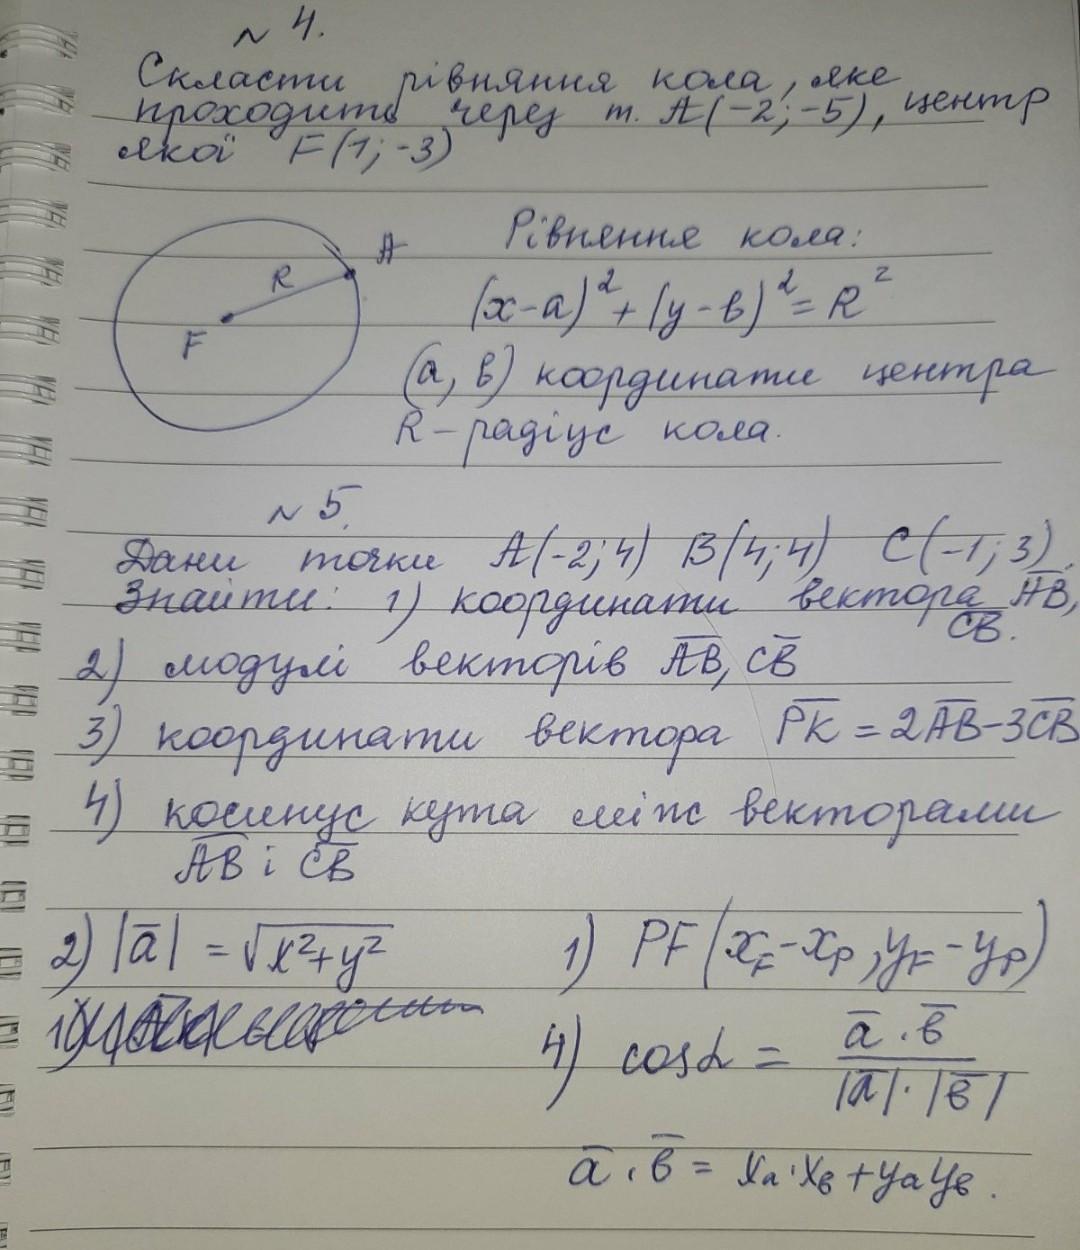 № 4.
Скласти рівняння кола, яке
проходить через т. A(-2; -5), центр
якої F(1; -3)
A
R
F
Рівняння кола:
(x-a)² + (y-в)² = R²
(a, в) координати центра
R - радіус кола.
№ 5.
Дани точки A(-2; 4) B(4; 4) C(-1; 3).
Знайти: 1) координати вектора A̅B̅,
C̅B̅.
2) модулі векторів A̅B̅, C̅B̅
3) координати вектора P̅K̅ = 2A̅B̅ - 3C̅B̅
4) косинус кута між векторами
A̅B̅ і C̅B̅
2) |a̅| = √x²+y²
1) PF (x_F - x_P, y_F - y_P)
4) cosα = a̅ · в̅ / |a̅| · |в̅|
a̅ · в̅ = xₐ · x_в + yₐ y_в.